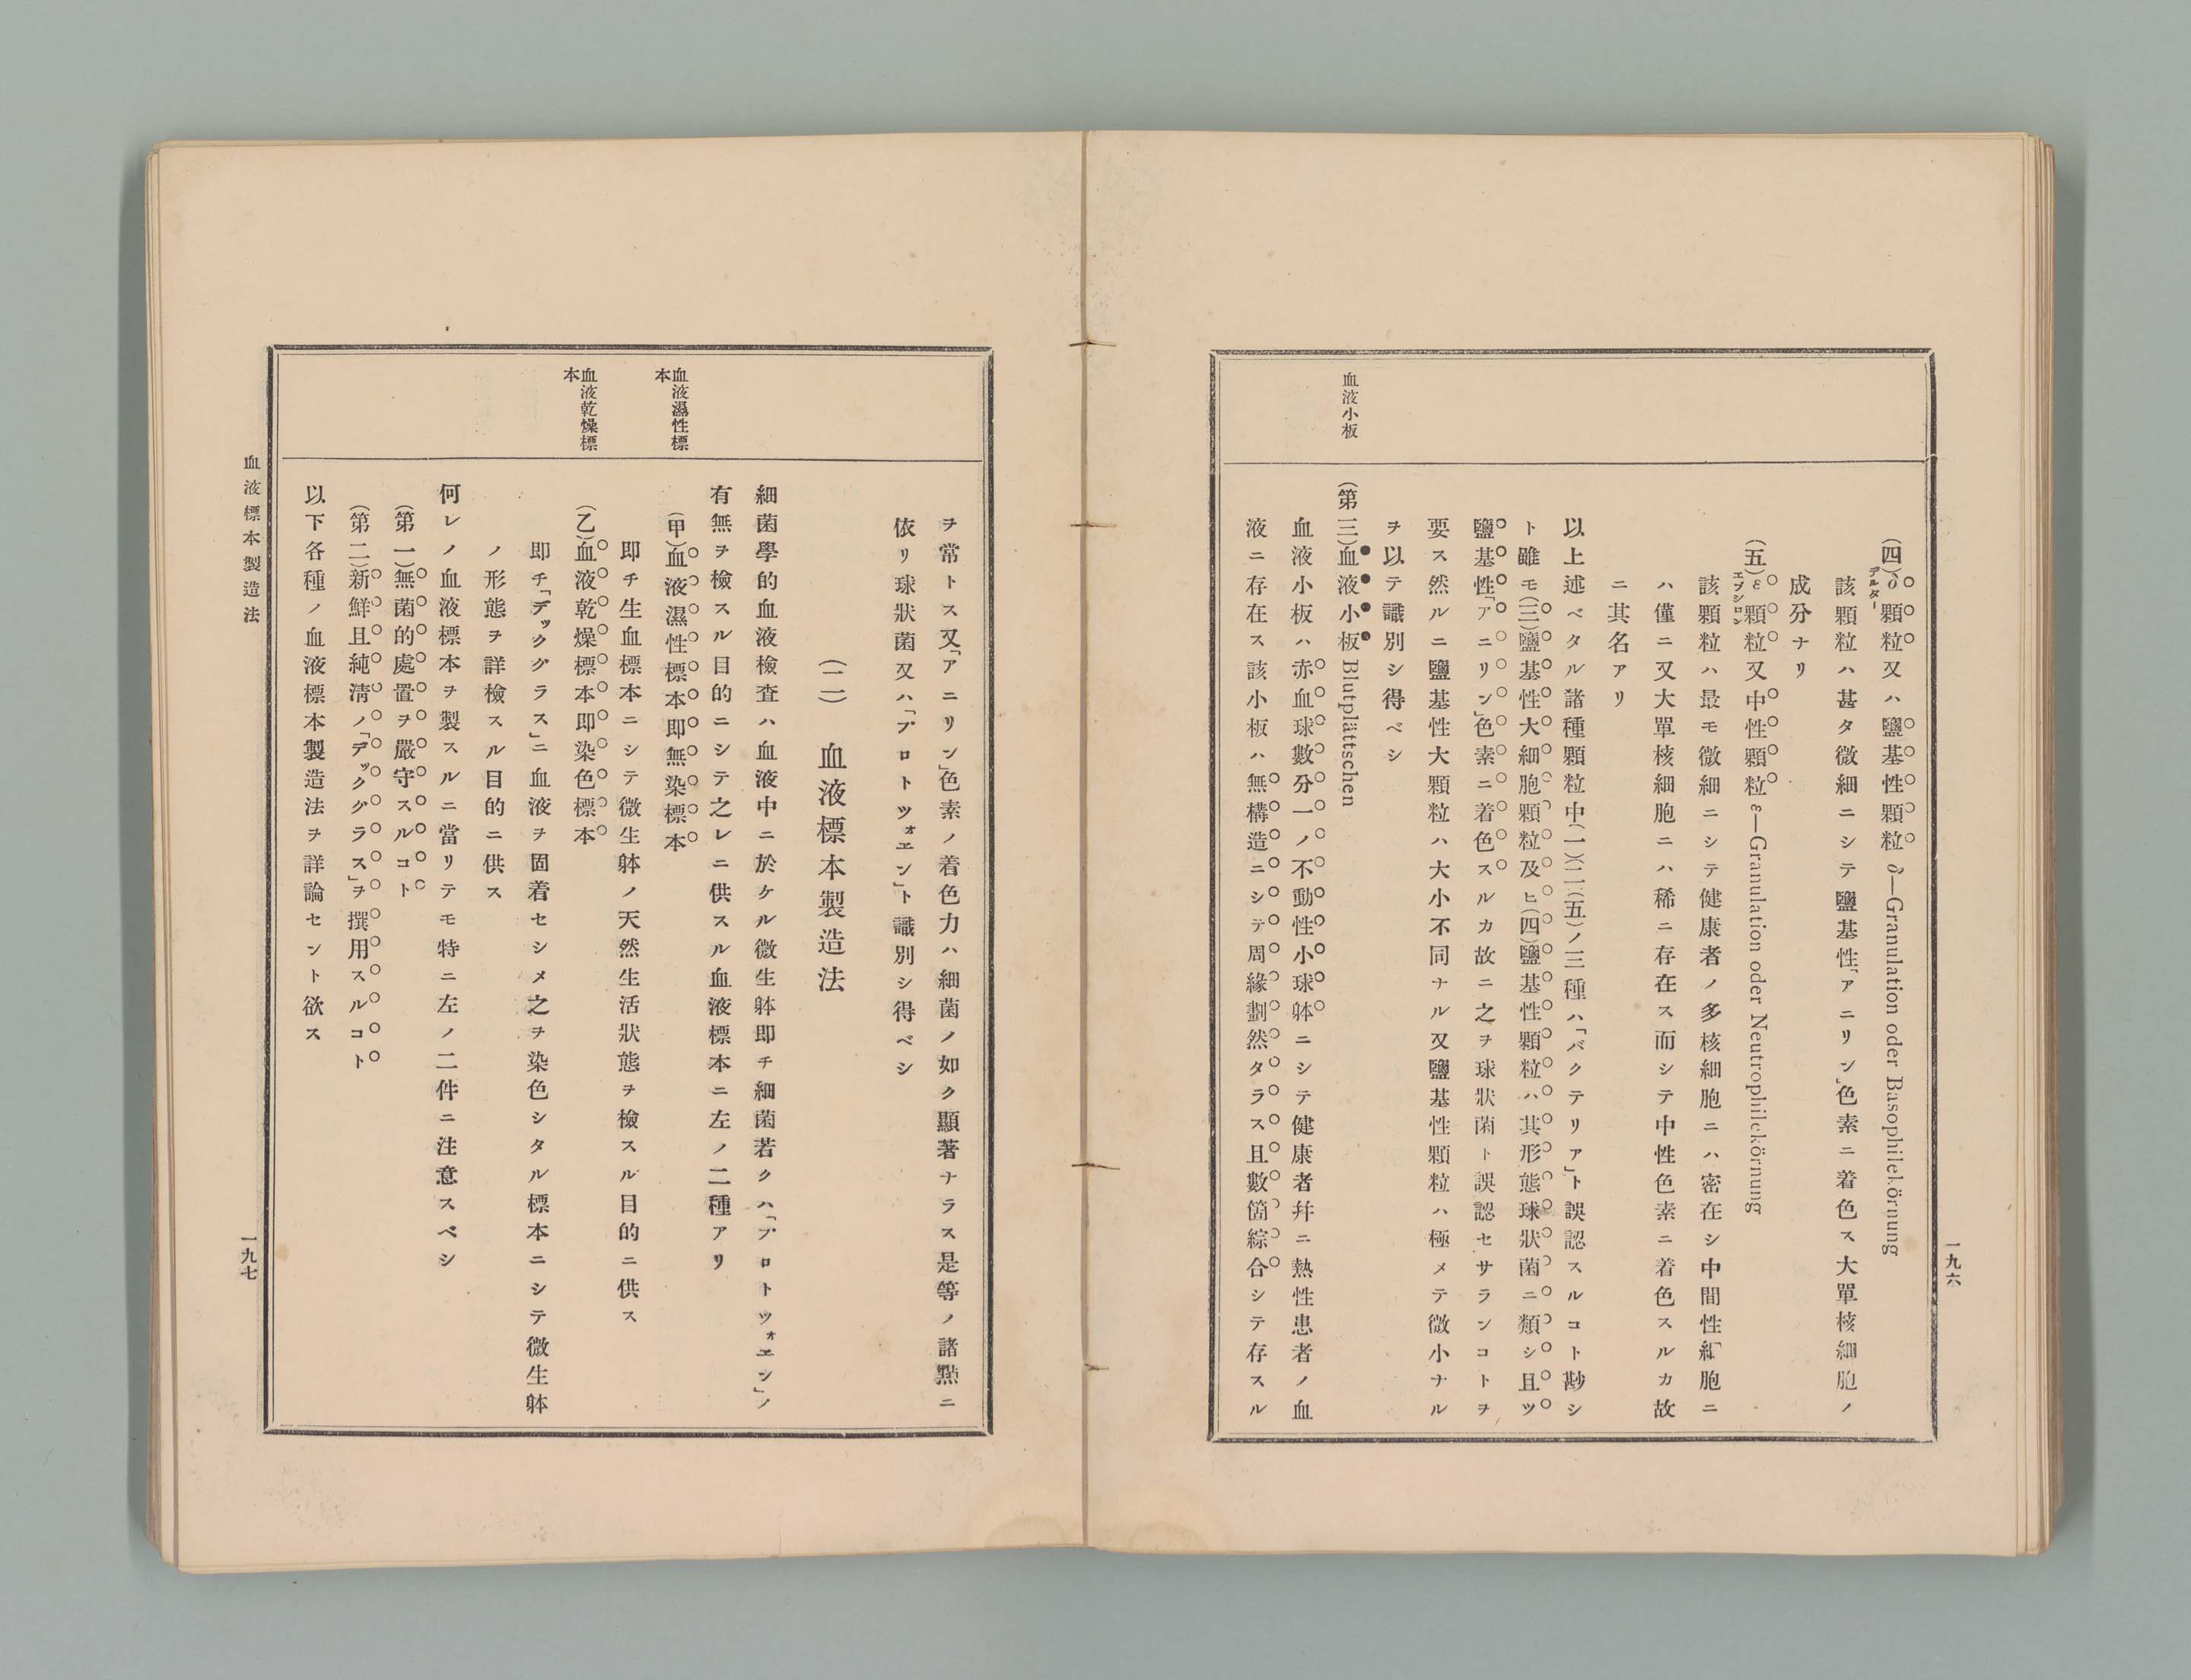 血液小板
(四)δ顆粒又ハ鹽基性顆粒 δ—Granulation oder Basophilekörnung
デルター
該顆粒ハ甚タ微細ニシテ鹽基性「アニリン」色素ニ着色ス大單核細胞ノ
成分ナリ
(五)ε顆粒又中性顆粒 ε—Granulation oder Neutrophilekörnung
エプシロン
該顆粒ハ最モ微細ニシテ健康者ノ多核細胞ニハ密在シ中間性細胞ニ
ハ僅ニ又大單核細胞ニハ稀ニ存在ス而シテ中性色素ニ着色スルカ故
ニ其名アリ
以上述ベタル諸種顆粒中(一)(二)(五)ノ三種ハ「バクテリア」ト誤認スルコト尠シ
ト雖モ(三)鹽基性大細胞顆粒及ヒ(四)鹽基性顆粒ハ其形態球狀菌ニ類シ且ツ
鹽基性「アニリン」色素ニ着色スルカ故ニ之ヲ球狀菌ト誤認セサランコトヲ
要ス然ルニ鹽基性大顆粒ハ大小不同ナル又鹽基性顆粒ハ極メテ微小ナル
ヲ以テ識別シ得ベシ
(第三)血液小板 Blutplättschen
血液小板ハ赤血球數分一ノ不動性小球躰ニシテ健康者幷ニ熱性患者ノ血
液ニ存在ス該小板ハ無構造ニシテ周緣劃然タラス且數箇綜合シテ存スル
一九六
血液濕性標本
血液乾燥標本
ヲ常トス又「アニリン」色素ノ着色力ハ細菌ノ如ク顯著ナラス是等ノ諸點ニ
依リ球狀菌又ハ「プロトツォエン」ト識別シ得ベシ
(二) 血液標本製造法
細菌學的血液檢査ハ血液中ニ於ケル微生躰即チ細菌若クハ「プロトツォエン」ノ
有無ヲ檢スル目的ニシテ之レニ供スル血液標本ニ左ノ二種アリ
(甲)血液濕性標本即無染標本
即チ生血標本ニシテ微生躰ノ天然生活狀態ヲ檢スル目的ニ供ス
(乙)血液乾燥標本即染色標本
即チ「デックグラス」ニ血液ヲ固着セシメ之ヲ染色シタル標本ニシテ微生躰
ノ形態ヲ詳檢スル目的ニ供ス
何レノ血液標本ヲ製スルニ當リテモ特ニ左ノ二件ニ注意スベシ
(第一)無菌的處置ヲ嚴守スルコト
(第二)新鮮且純淸ノ「デックグラス」ヲ撰用スルコト
以下各種ノ血液標本製造法ヲ詳論セント欲ス
血液標本製造法
一九七